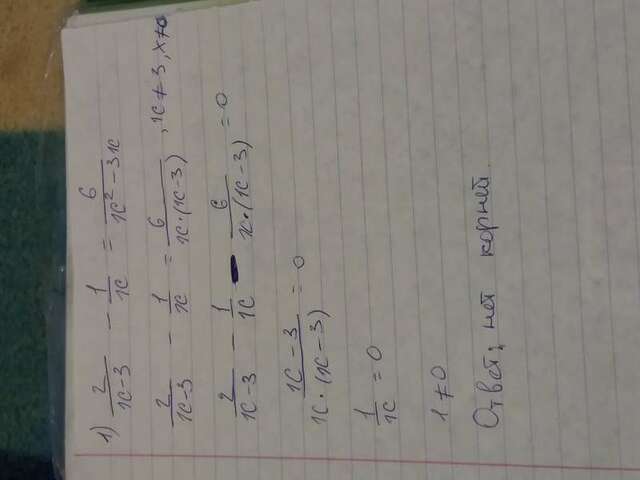 1) 2/(x-3) - 1/x = 6/(x² - 3x)
2/(x-3) - 1/x = 6/(x·(x-3)), x≠3, x≠0
2/(x-3) - 1/x - 6/(x·(x-3)) = 0
(x-3)/(x·(x-3)) = 0
1/x = 0
1≠0
Ответ: нет корней